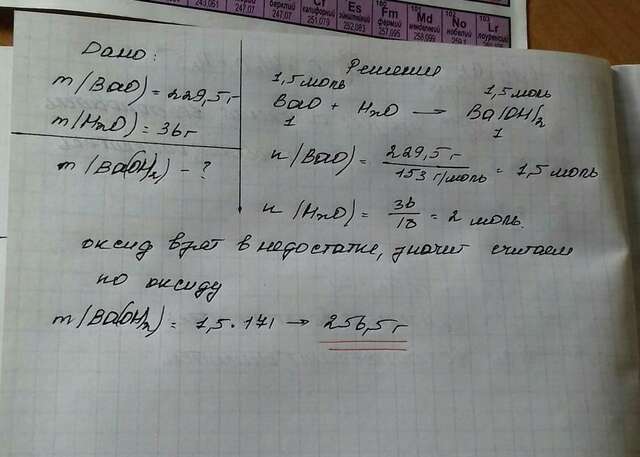 Cf калифорний 251,079
Es эйнштейний 252,083
100 Fm фермий 257,095
101 Md менделевий 258,099
102 No нобелий
103 Lr
247,07
Дано:
m(BaO) = 229,5 г
m(H2O) = 36 г
m(Ba(OH)2) - ?
Решение
1,5 моль 1,5 моль
BaO + H2O → Ba(OH)2
1 1
n(BaO) = 229,5 г / 153 г/моль = 1,5 моль
n(H2O) = 36 / 18 = 2 моль.
оксид взят в недостатке, значит считаем
по оксиду
m(Ba(OH)2) = 1,5 · 171 → 256,5 г